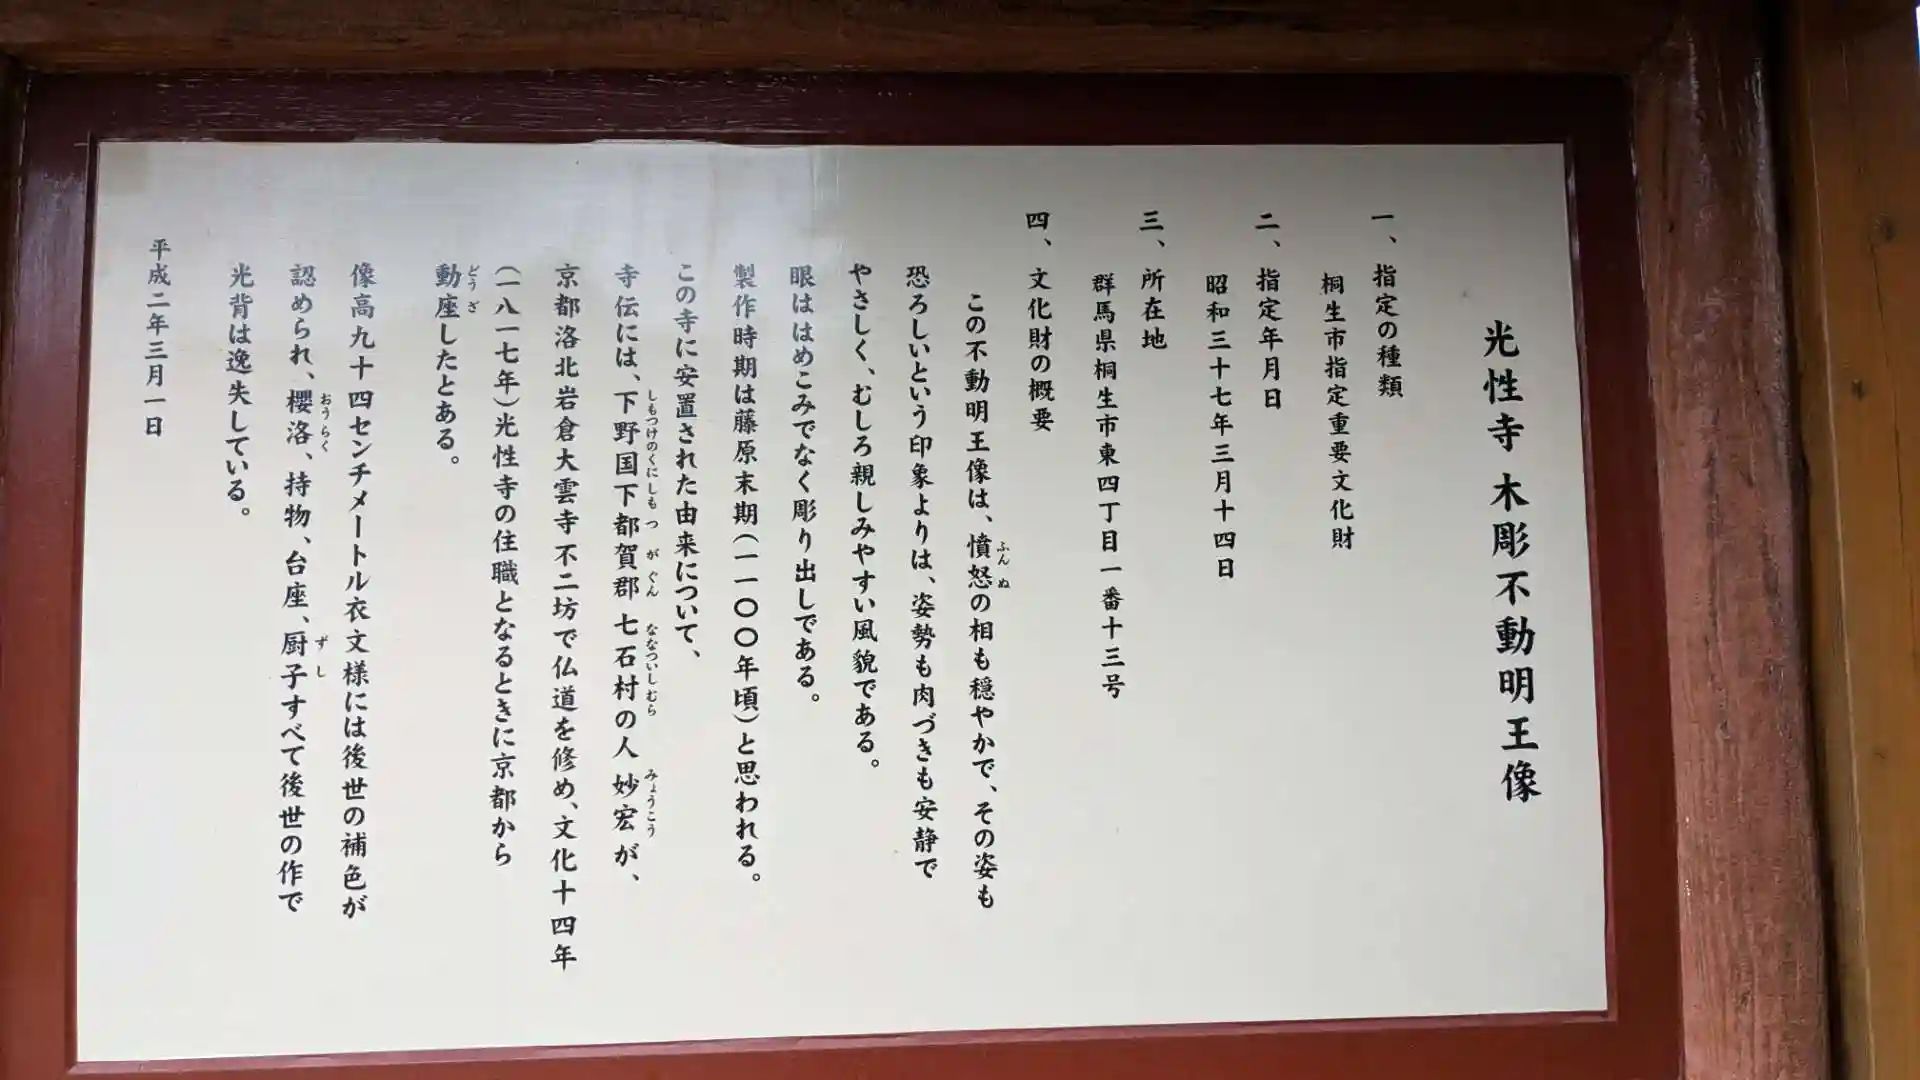 光性寺 木彫不動明王像
一、指定の種類
桐生市指定重要文化財
二、指定年月日
昭和三十七年三月十四日
三、所在地
群馬県桐生市東四丁目一番十三号
四、文化財の概要
この不動明王像は、憤怒の相も穏やかで、その姿も
ふんぬ
恐ろしいという印象よりは、姿勢も肉づきも安静で
やさしく、むしろ親しみやすい風貌である。
眼ははめこみでなく彫り出しである。
製作時期は藤原末期(一一〇〇年頃)と思われる。
この寺に安置された由来について、
寺伝には、下野国下都賀郡 七石村の人 妙宏が、
しもつけのくにしもつがぐん ななついしむら みょうこう
京都洛北岩倉大雲寺不二坊で仏道を修め、文化十四年
(一八一七年)光性寺の住職となるときに京都から
動座したとある。
どうざ
像高九十四センチメートル衣文様には後世の補色が
認められ、櫻洛、持物、台座、厨子すべて後世の作で
おうらく ずし
光背は逸失している。
平成二年三月一日